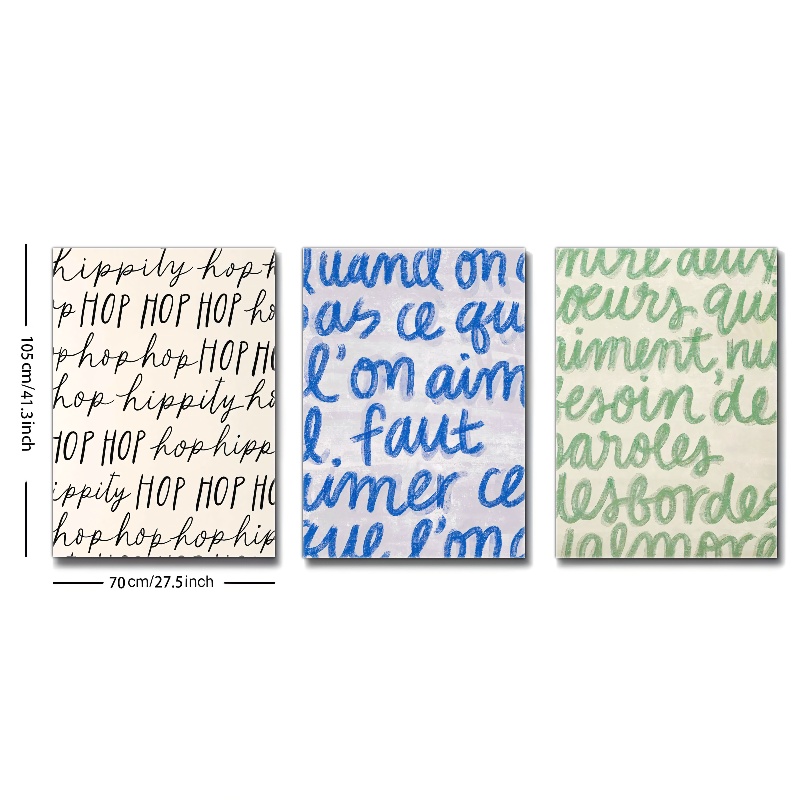 105cm/41.3inch
hippity hop h
p HOP HOP HOP ho
phophopHOP H
hop hippity hi
HOP HOP hophipp
ippity HOP HOP HO
hophophophip
70cm/27.5inch
quand on
pas ce qu
l'on aim
l faut
aimer ce
que l'on
ntre deux
coeurs qui
aiment, nu
besoin de
paroles
desbordes